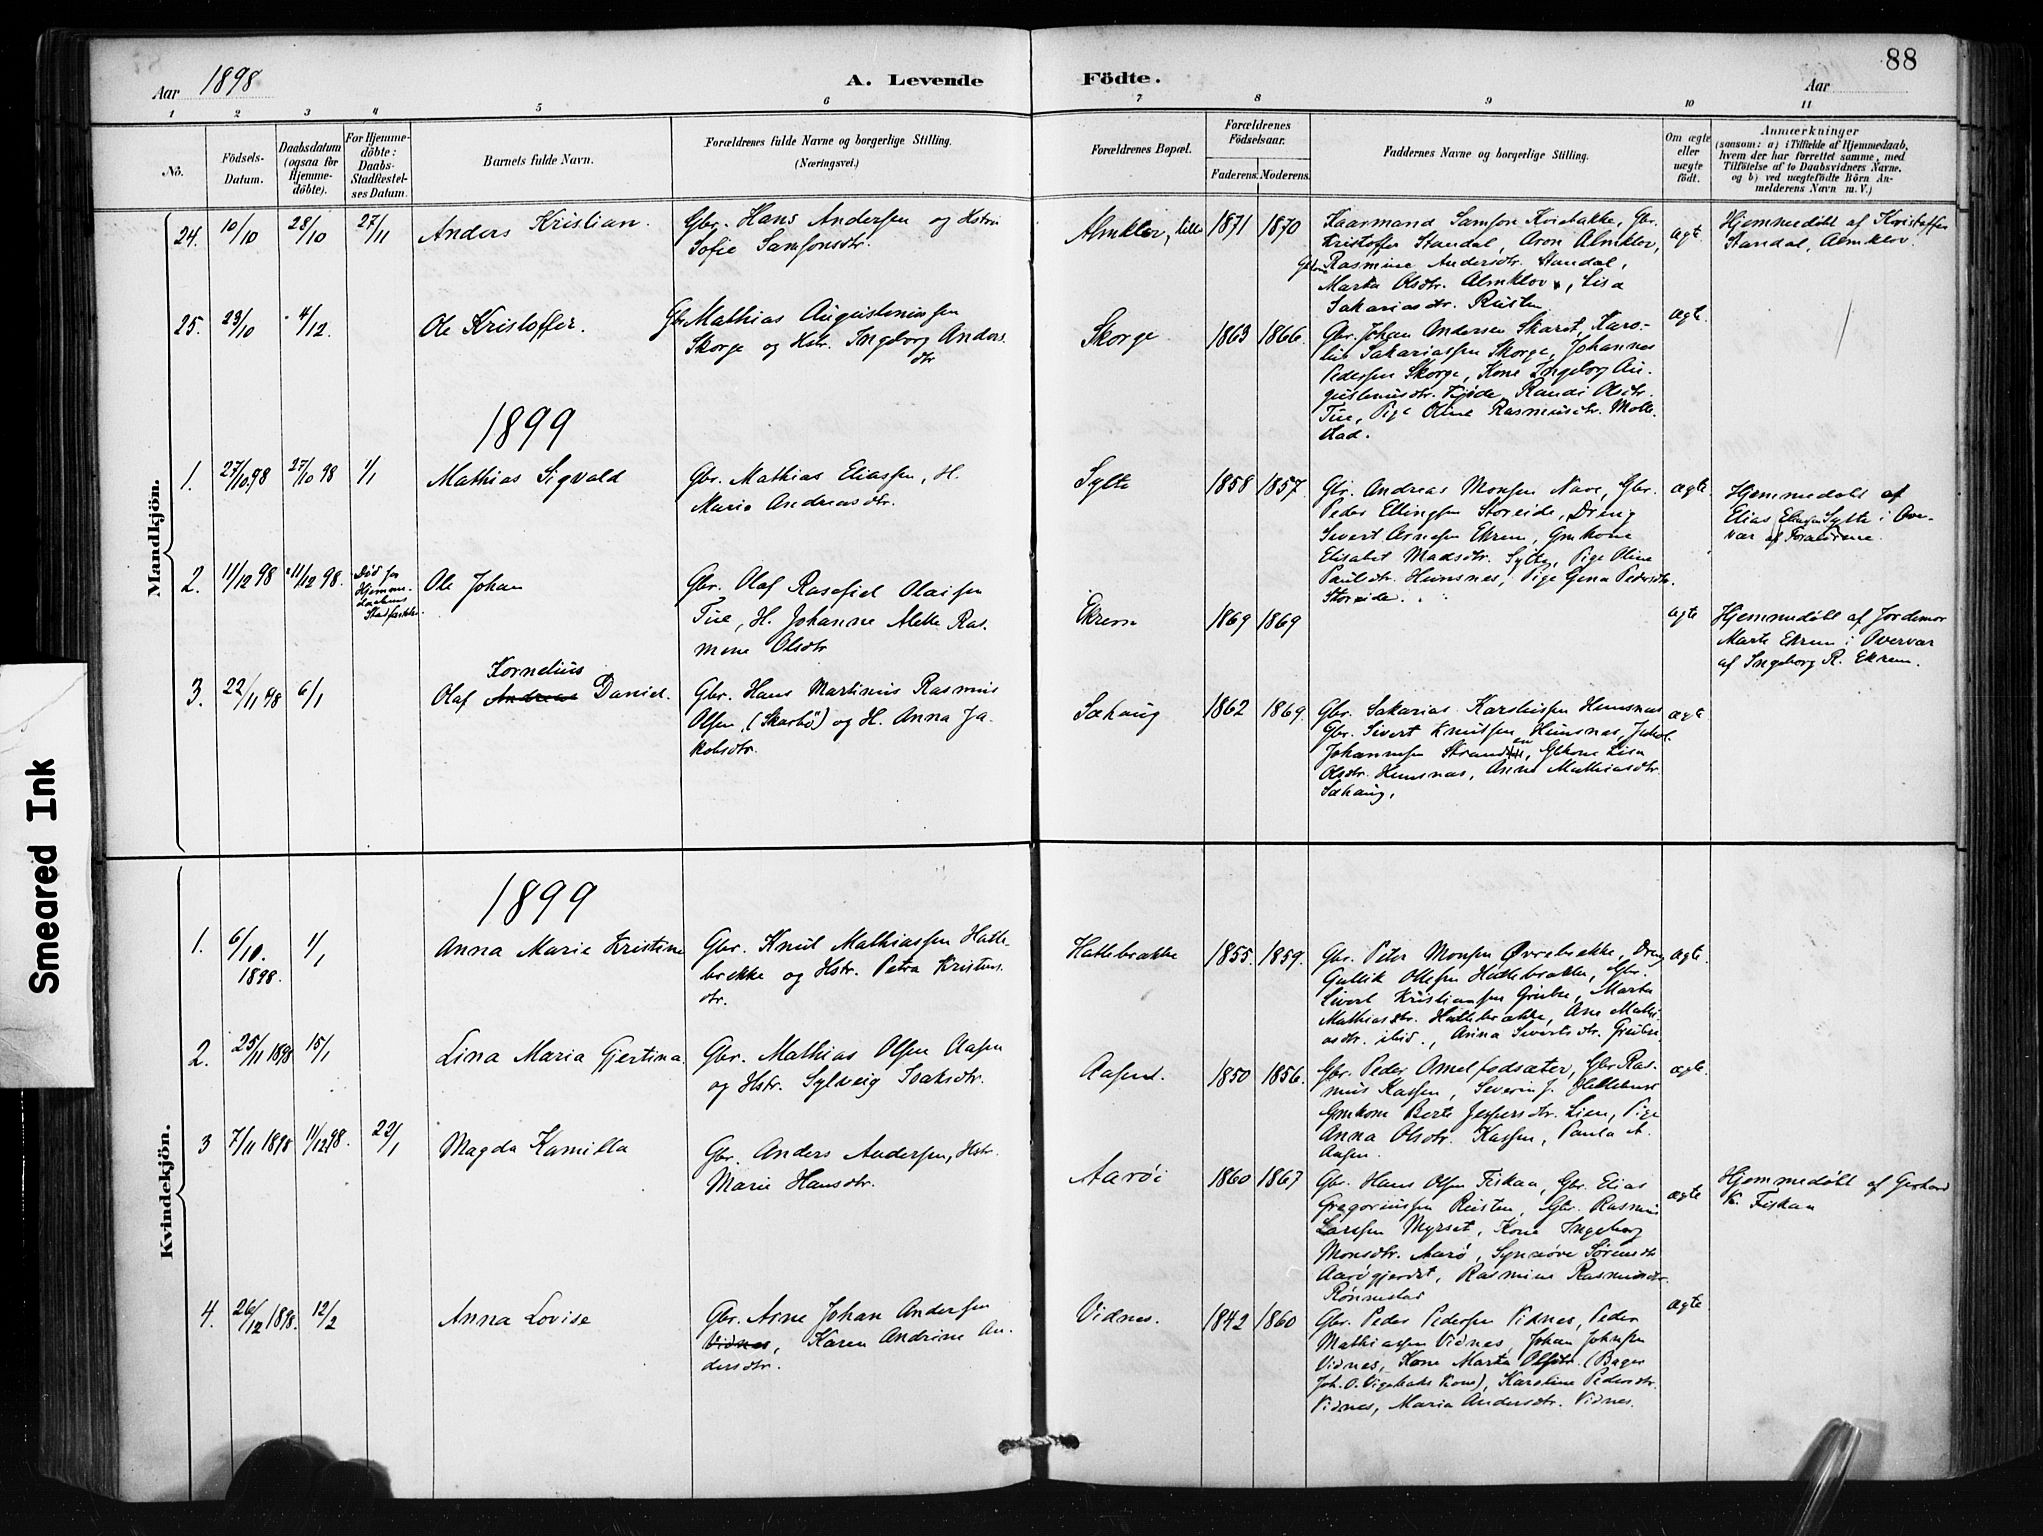 88
Aar 1898
A. Levende
Födte.
Aar
1 2 3 4 5 6 7 8 9 10 11
No.
Födsels-
Datum.
Daabsdatum
(ogsaa for
Hjemme-
döbte).
For Hjemme-
döbte:
Daabs-
Stadfæstel-
ses Datum.
Barnets fulde Navn.
Forældrenes fulde Navne og borgerlige Stilling.
(Næringsvei.)
Forældrenes Bopæl.
Forældrenes
Födselsaar.
Faderens. Moderens.
Faddernes Navne og borgerlige Stilling.
Om ægte
eller
uægte
födt.
Anmærkninger
(saasom: a) i Tilfælde af Hjemmedaab,
hvem der har forrettet samme, med
Tilföielse af to Daabsvidners Navne.
og b) ved uægtefödte Börn An-
melderens Navn m. V.)
Mandkjön.
24. 10/10 28/10 27/11 Anders Kristian.
Gbr. Hans Andersen og Hstr.
Sofie Samsonsdtr.
Almklov, lille 1871 1870
Kaarmand Samson Kvibakke, Gbr.
Kristoffer Standal, Aron Almklov,
Rasmine Andersdtr. Standal,
Marta Olsdtr. Almklov, Lisa
Sakariasdtr. Reusten
ægte.
Hjemmedøbt af Kristoffer
Standal, Almklov.
25. 23/10 4/12. Ole Kristoffer.
Gbr. Mathias Augustinussen
Skorge og Hstr. Ingeborg Anders
dtr
Skorge 1863 1866.
Gbr. Johan Andersen Skaret, Karo-
lius Sakariassen Skorge, Johannes
Pedersen Skorge, Kone Ingeborg Au-
gustinusdtr. Fjøde, Randi Olsdtr.
Tue, Pige Oline Rasmusdtr. Molle-
stad.
ægte.
1899
1. 27/10 98 27/10 98 1/1 Mathias Sigvald
Gbr. Mathias Eliassen, H.
Marie Andreasdtr.
Sylte 1858 1857.
Gbr. Andreas Monsen Nave, Gbr.
Peder Ellingsen Storeide, Dreng
Sivert Arnesen Ekrem, Gmkone
Elisabet Madsdtr. Sylte, Pige Oline
Paulsdtr. Humsnes, Pige Gina Pedersdtr.
Storeide.
ægte.
Hjemmedøbt af
Elias Eliassen Sylte i Over-
vær af Forældrene.
2. 11/12 98 11/12 98. Død før
Hjemme-
daabens
Stadfæstelse.
Ole Johan
Gbr. Olaf Rasefiel Olaisen
Tue, H. Johanne Mette Ras-
mine Olsdtr
Ekrem 1869 1869
ægte
Hjemmedøbt af Jordemor
Marte Ekrem i Overvær
af Ingeborg R. Ekrem.
Kornelius
3. 22/11 98 6/1 Olaf Andreas Daniel.
Gbr. Hans Martinus Rasmus
Olsen (Skarbö) og H. Anna Ja-
kobsdtr.
Sæhaug 1862 1869.
Gbr. Sakarias Karolussen Humsnes
Gbr. Sivert Knutsen Humsnes, Jakob
Johannesen Stranden, Gbkone Lisa
Olsdtr. Humsnes, Anne Mathiasdtr.
Sæhaug,
ægte
Kvindekjön.
1899
1. 6/10. 1898. 1/1 Anna Marie Kristine
Gbr. Knut Mathiassen Hatle-
brekke og Hstr. Petra Kristens
dtr.
Hatlebrække 1855. 1859.
Gbr. Peter Monsen Øvrebrekke, Dreng
Gullik Ollesen Hatlebrække, Gbr.
Sivert Kristiansen Grebu, Marta
Mathiasdtr. Hatlebrække, Ane Mathi-
asdtr. ibid., Anna Sivertsdtr. Grebu
ægte.
2. 25/11 1898 15/1 Lina Maria Gjertina.
Gbr. Mathias Olsen Aasen
og Hstr. Sylveig Isaksdtr.
Aasen. 1850 1856.
Gbr. Peder Omelfodsæter, Gbr. Ras-
mus Kassen, Severin J. Hellebust
Gmkone Berte Jespersdtr. Lien, Pige
Anna Olsdtr. Kassen, Paula A.
Aasen.
ægte.
3 7/11 1898 11/12 98. 22/1 Magda Kamilla
Gbr. Anders Andersen, Hstr.
Marie Hansdtr.
Aarøi 1860 1867
Gbr. Hans Olsen Fiskaa, Gbr. Elias
Gregoriussen Reusten, Gbr. Rasmus
Larssen Myrset, Kone Ingeborg
Monsdtr. Aarø, Synnøve Sørensdtr
Aarøgjerdet, Rasmine Rasmusdtr.
Rønnestad
ægte
Hjemmedøbt af Gerhard
K. Fiskaa
4. 26/12 1898. 12/2 Anna Lovise
Gbr. Arne Johan Andersen
Vidnes, Karen Andrine An-
dersdtr.
Vidnes. 1842 1860
Gbr. Peder Pedersen Vidnes, Peder
Mathiassen Vidnes, Johan Johnsen
Vidnes, Kone Marta Olsdtr. (Bager
Joh. O. Vigebaks Kone), Karoline Pedersdtr.
Vidnes, Maria Andersdtr. Vidnes.
ægte
Smeared Ink